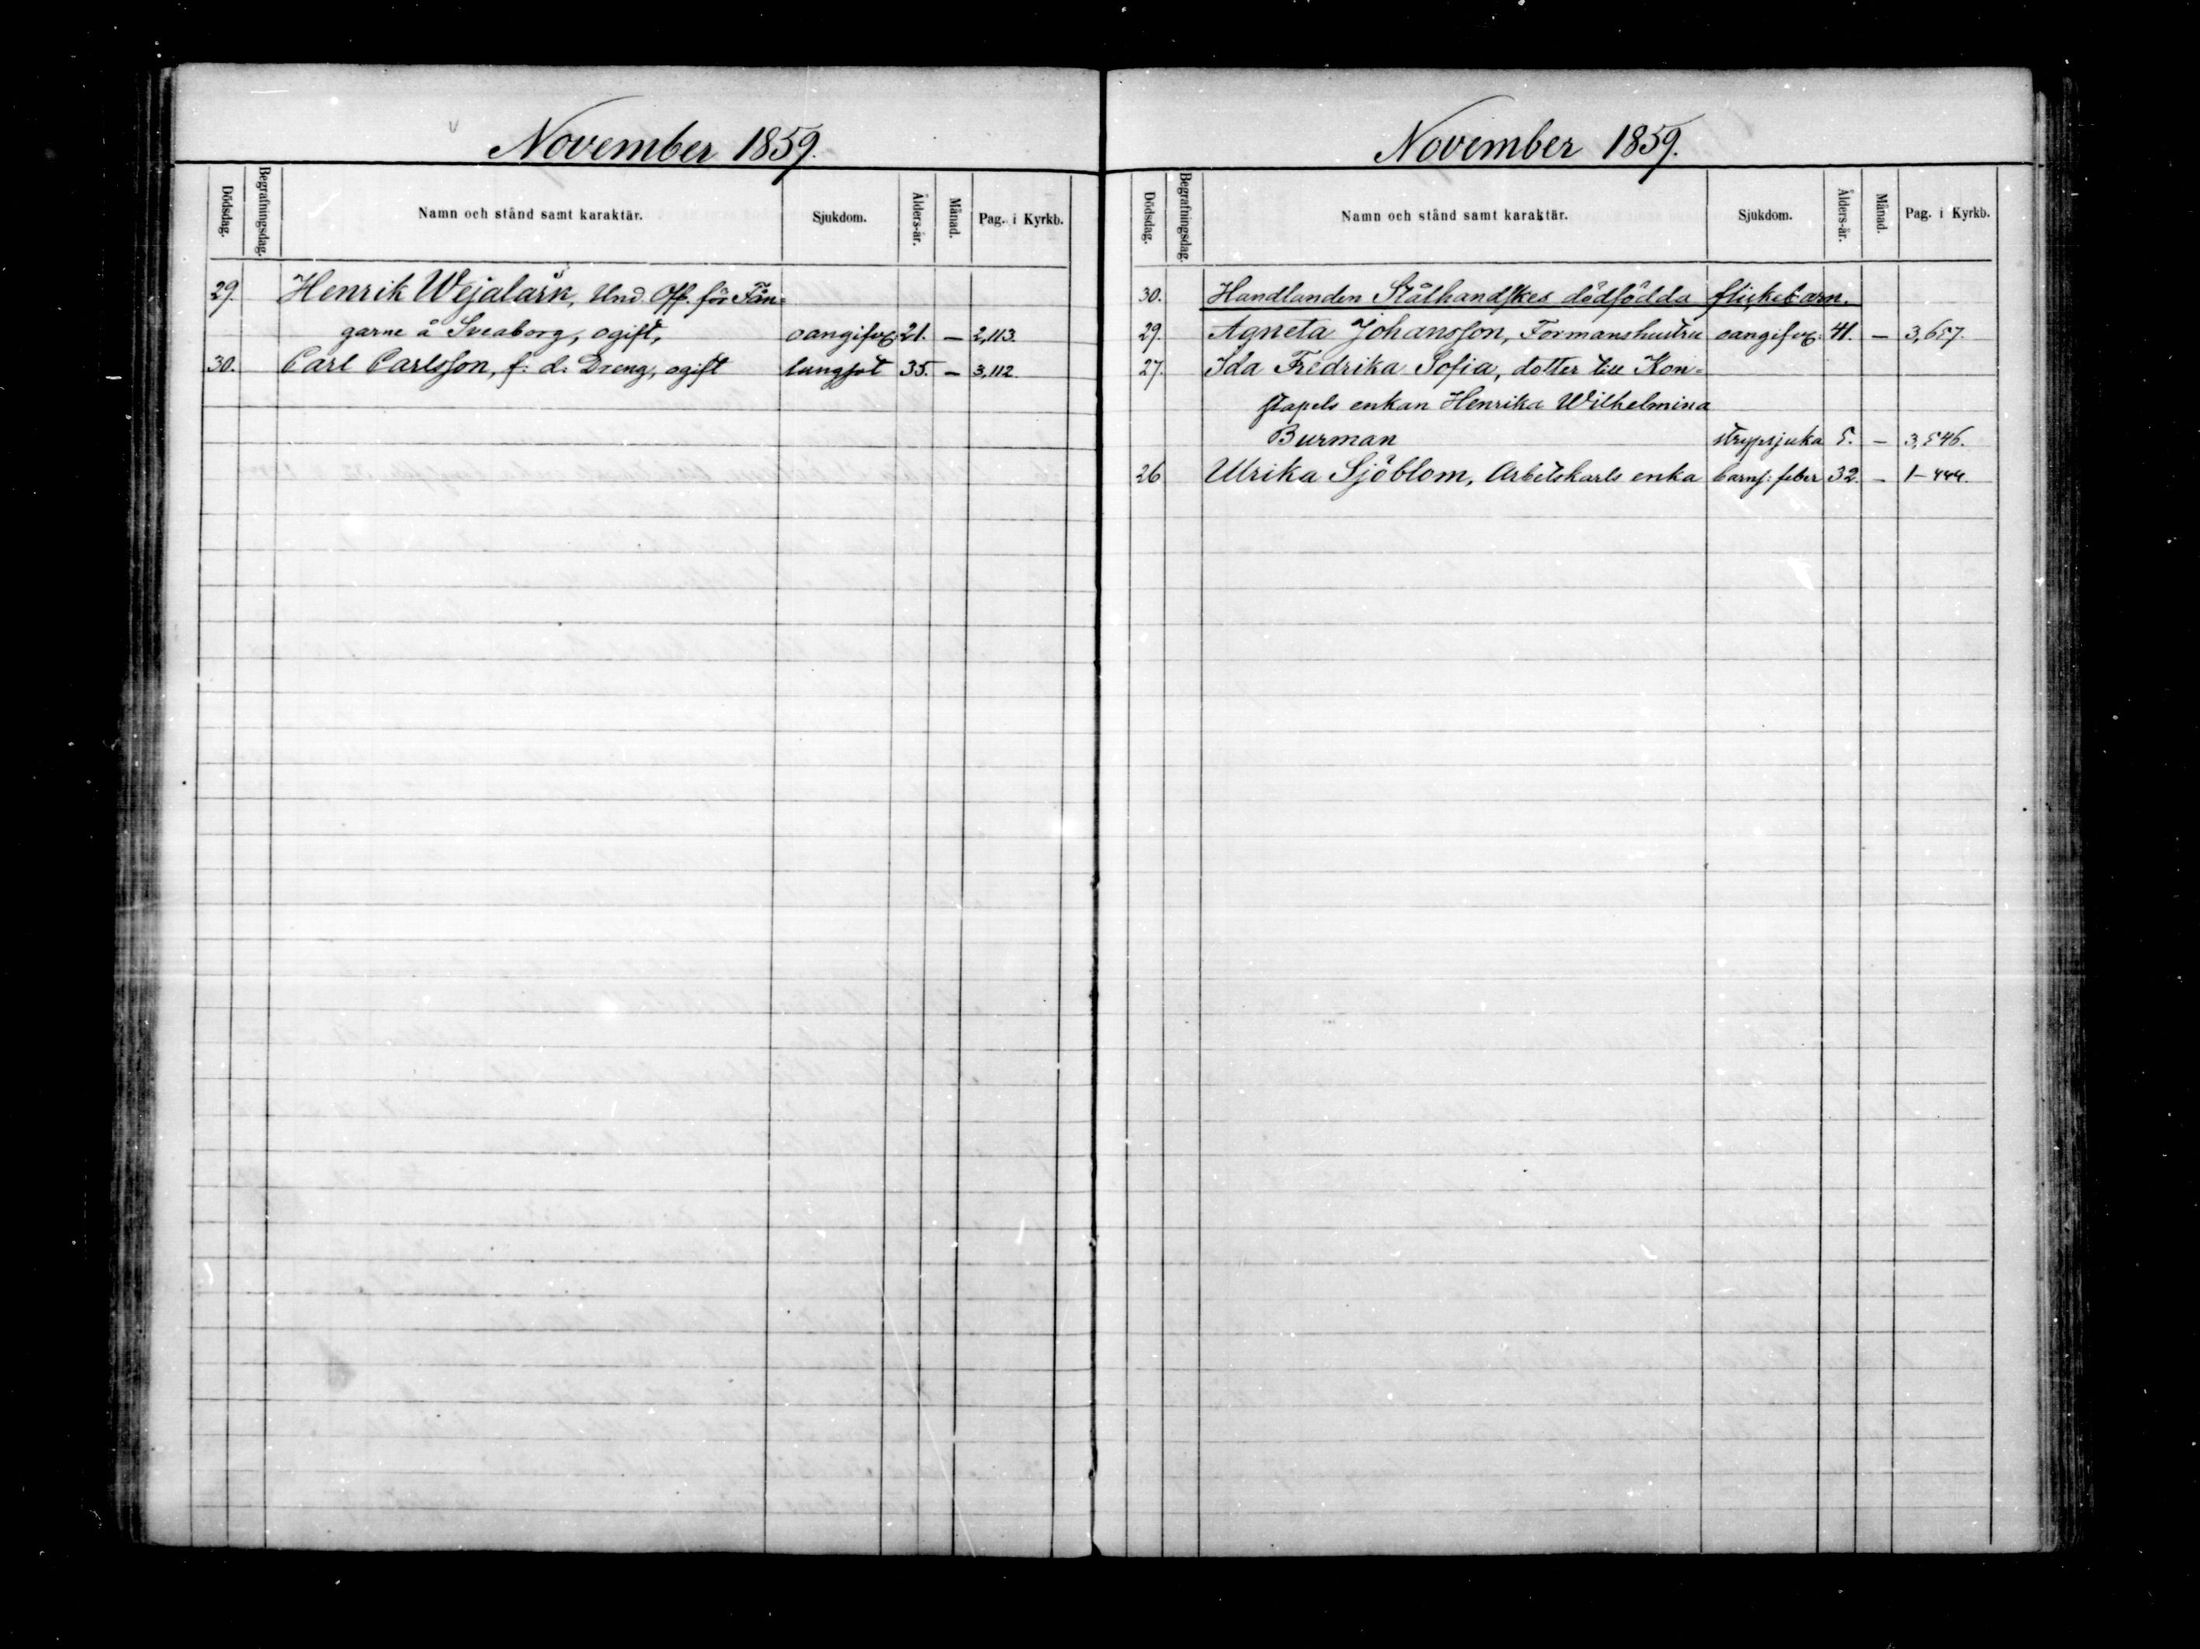 November 1859.
Dödsdag. Begrafningsdag. Namn och stånd samt karaktär. Sjukdom. Ålders-år. Månad. Pag. i Kyrkb.
29. Henrik Wejalärk, Und. Off. för Fån=
garne å Sveaborg, ogift, oangifvet 21. — 2,113.
30. Carl Carlsson, f: d: Dreng, ogift lungsot 35. — 3,112.
November 1859.
Dödsdag. Begrafningsdag. Namn och stånd samt karaktär. Sjukdom. Ålders-år. Månad. Pag. i Kyrkb.
30. Handlanden Stålhandskes dödfödda flickebarn.
29. Agneta Johansson, Formanshustru oangifvet 41. — 3,657.
27. Ida Fredrika Sofia, dotter till Kon=
stapels enkan Henrika Wilhelmina
Burman strypsjuka 5. — 3,546.
26 Ulrika Sjöblom, Arbetskarls enka barns: feber 32. — 1-444.